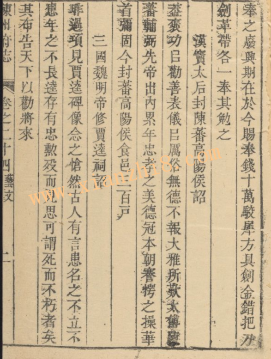 奉之廣興期在於今賜奉錢十萬駮犀方具劍金錯把刀
劍革帶各一奉其勉之
漢竇太后封陳蕃高陽侯詔
蓋褒功以勸善表儀以厲俗無德不報大雅所歎太傅陳
蕃輔弼先帝出內累年忠孝之美德冠本朝謇愕之操華
首彌固今封蕃高陽侯食邑三百戶
三國魏明帝修賈逵祠詔
昨過項見賈逵碑像念之愴然古人有言患名之不立不
患年之不長逵存有忠勲歿而見思可謂死而不朽者矣
其布告天下以勸將來
卷之二十四藝文